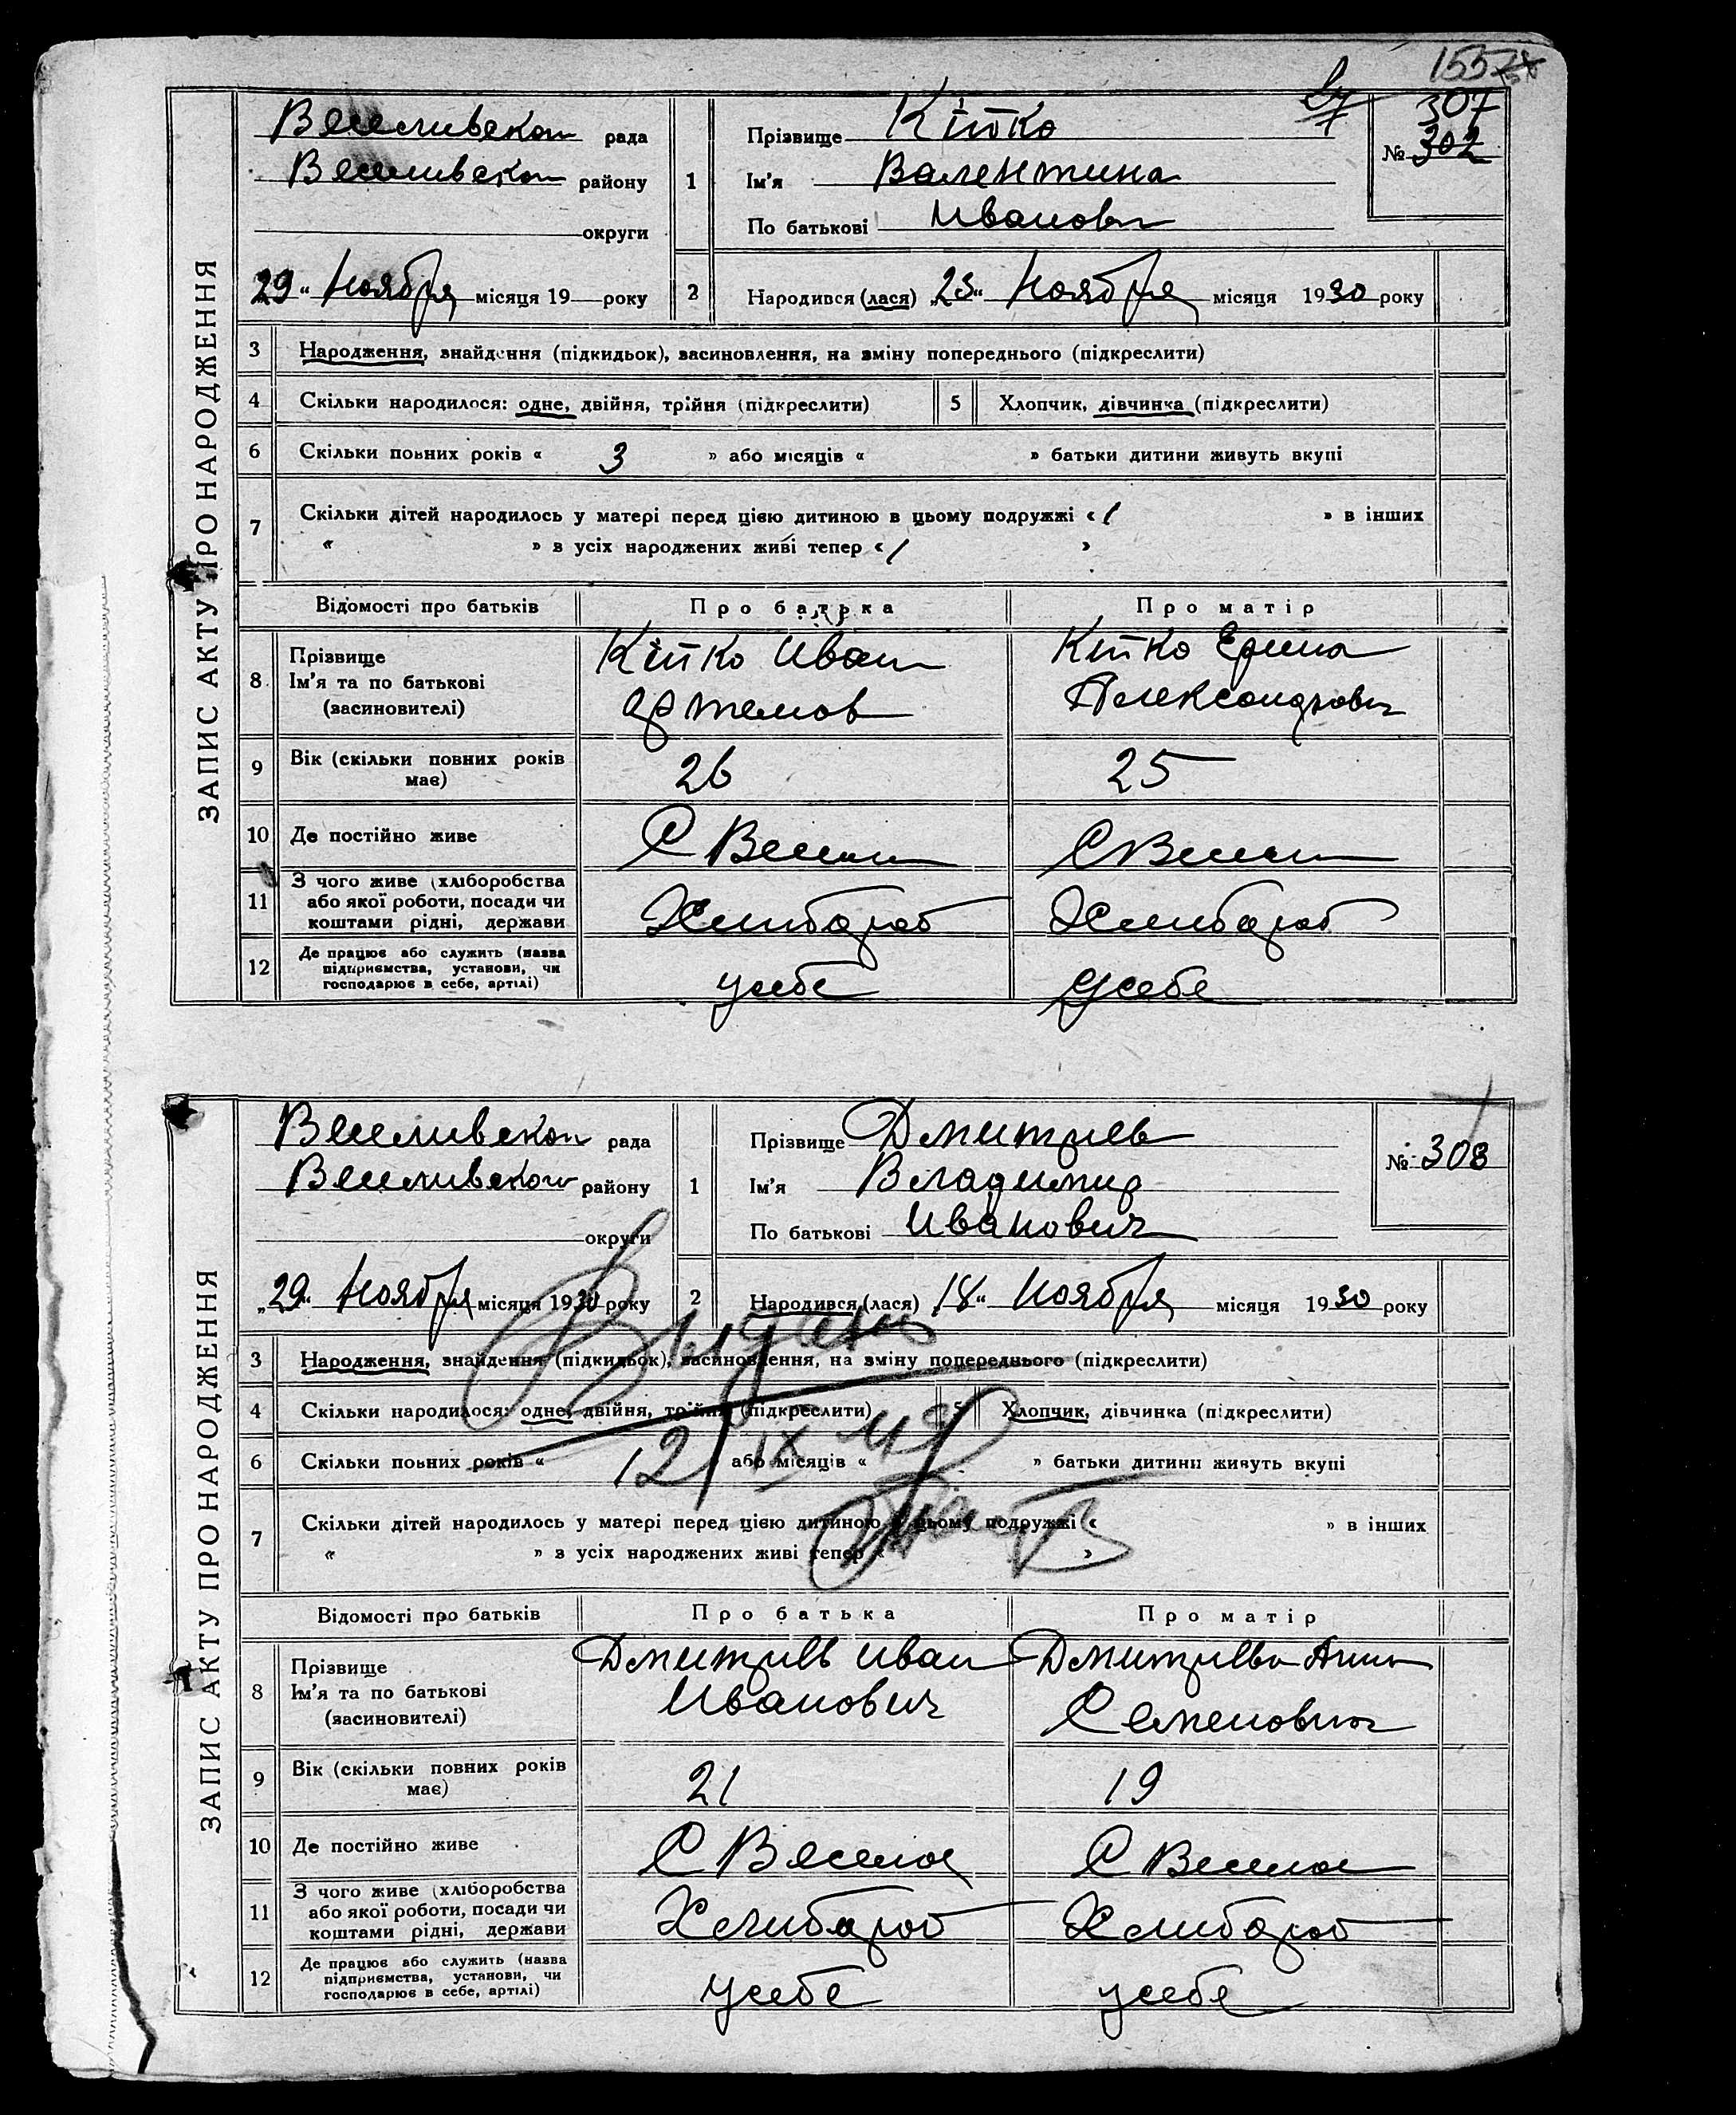 155
307
№ 302
ЗАПИС АКТУ ПРО НАРОДЖЕННЯ
Веселивской рада
Веселивской району
округи
29 " Ноября місяця 19 року
1
Прізвище Кітко
Ім'я Валентина
По батькові Иванов
2 Народився (лася) „23" Ноября місяця 1930 року
3 Народження, знайдення (підкидьок), засиновлення, на зміну попереднього (підкреслити)
4 Скільки народилося: одне, двійня, трійня (підкреслити) 5 Хлопчик, дівчинка (підкреслити)
6 Скільки повних років « 3 » або місяців « » батьки дитини живуть вкупі
7 Скільки дітей народилось у матері перед цією дитиною в цьому подружжі « 1 » в інших
« » з усіх народжених живі тепер « 1 »
Відомості про батьків Про батька Про матір
8 Прізвище
Ім'я та по батькові
(засиновителі)
Кітко Иван
Артемов
Кітко Ерина
Александров
9 Вік (скільки повних років
має)
26 25
10 Де постійно живе С Весел С Весел
11 З чого живе (хліборобства
або якої роботи, посади чи
коштами рідні, держави
Хлибороб Хлибороб
12 Де працює або служить (назва
підприємства, установи, чи
господарює в себе, артілі)
усебе усебе
ЗАПИС АКТУ ПРО НАРОДЖЕННЯ
Веселивской рада
Веселивской району
округи
„29" Ноября місяця 1930 року
1
Прізвище Дмитриев
Ім'я Владимир
По батькові Иванович
№ 308
2 Народився (лася) „18" Ноября місяця 1930 року
3 Народження, знайдення (підкидьок), засиновлення, на зміну попереднього (підкреслити)
4 Скільки народилося: одне, двійня, трійня (підкреслити) 5 Хлопчик, дівчинка (підкреслити)
6 Скільки повних років « » або місяців « » батьки дитини живуть вкупі
7 Скільки дітей народилось у матері перед цією дитиною в цьому подружжі « » в інших
« » з усіх народжених живі тепер « »
Выдан
12/IX
Відомості про батьків Про батька Про матір
8 Прізвище
Ім'я та по батькові
(засиновителі)
Дмитриев Иван
Иванович
Дмитриева Анна
Семенович
9 Вік (скільки повних років
має)
21 19
10 Де постійно живе С Веселое С Веселое
11 З чого живе (хліборобства
або якої роботи, посади чи
коштами рідні, держави
Хлибороб Хлибороб
12 Де працює або служить (назва
підприємства, установи, чи
господарює в себе, артілі)
усебе усебе